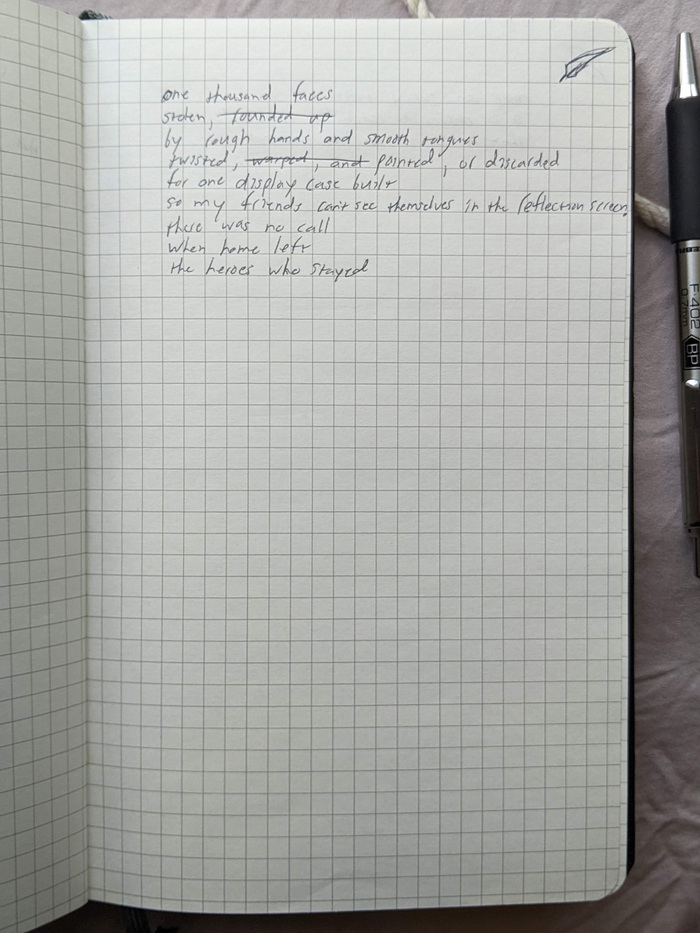 one thousand faces
stolen, rounded up
by rough hands and smooth tongues
twisted, warped, and painted, or discarded
for one display case built
so my friends can't see themselves in the reflection screen,
there was no call
when home left
the heroes who stayed
F-402
0.7mm
BP